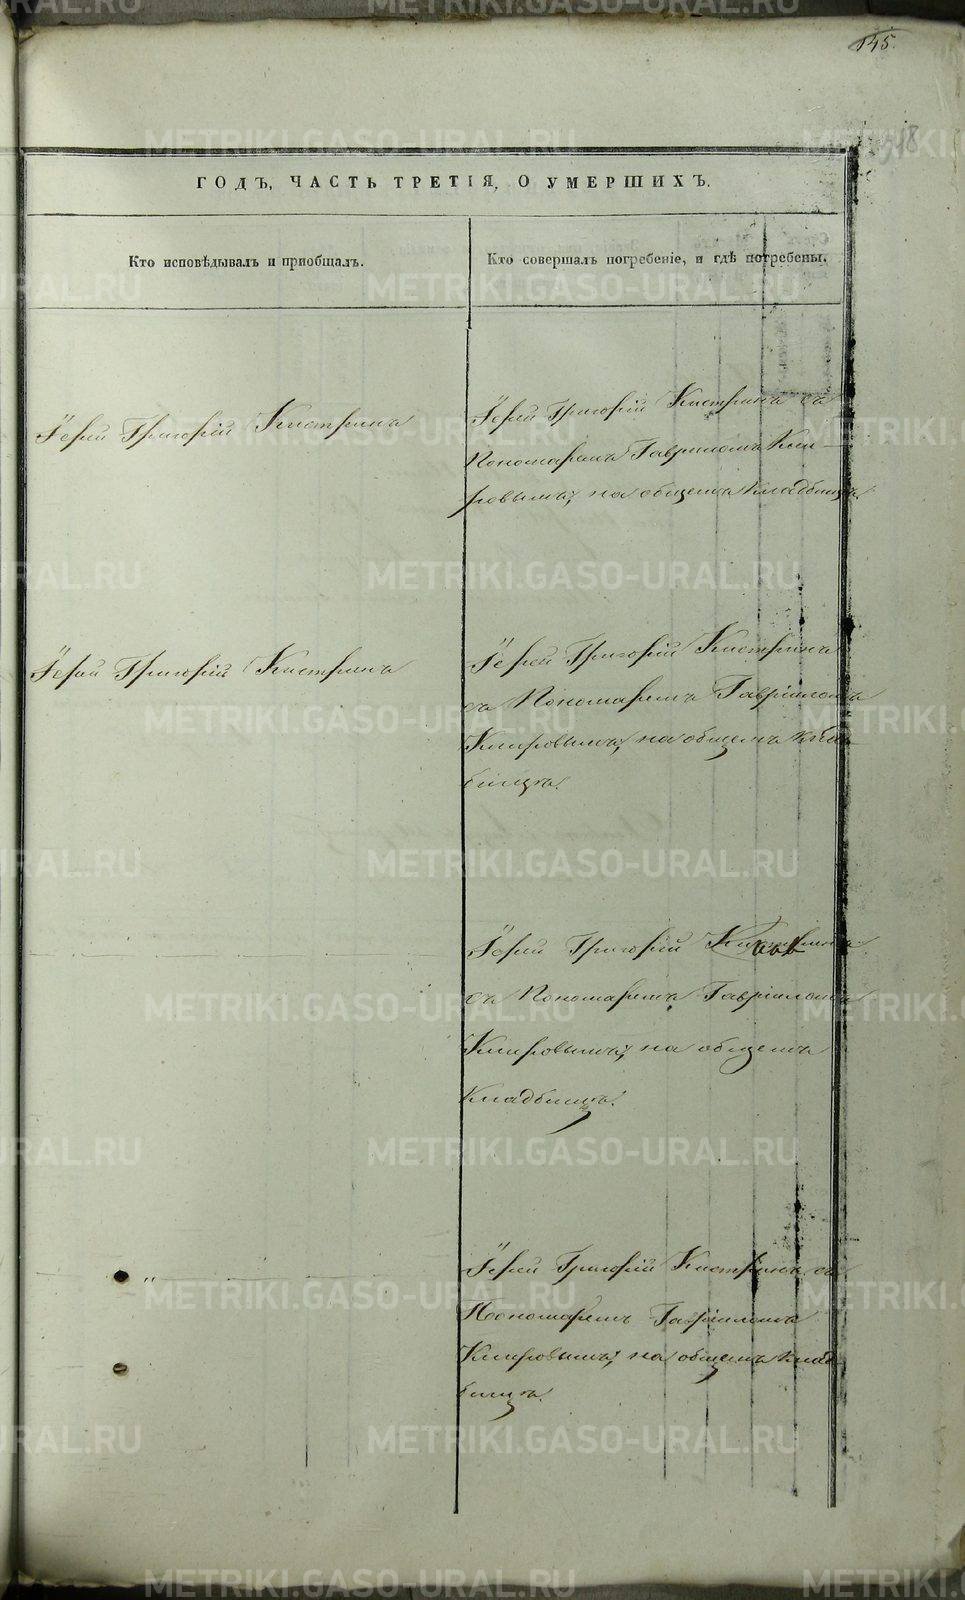 145.
518
ГОДЪ, ЧАСТЬ ТРЕТІЯ, О УМЕРШИХЪ.
Кто исповѣдывалъ и пріобщалъ.
Кто совершалъ погребеніе, и гдѣ погребены.
Іерей Григорій Кистринъ
Іерей Григорій Кистринъ съ
Пономаремъ Гавріиломъ Кли-
ровымъ, на общемъ кладбищѣ.
Іерей Григорій Кистринъ
Іерей Григорій Кистринъ
съ Пономаремъ Гавріиломъ
Клировымъ, на общемъ клад-
бищѣ.
Іерей Григорій Кистринъ
съ Пономаремъ Гавріиломъ
Клировымъ, на общемъ
кладбищѣ.
Іерей Григорій Кистринъ съ
Пономаремъ Гавріиломъ
Клировымъ, на общемъ клад-
бищѣ.
METRIKI.GASO-URAL.RU